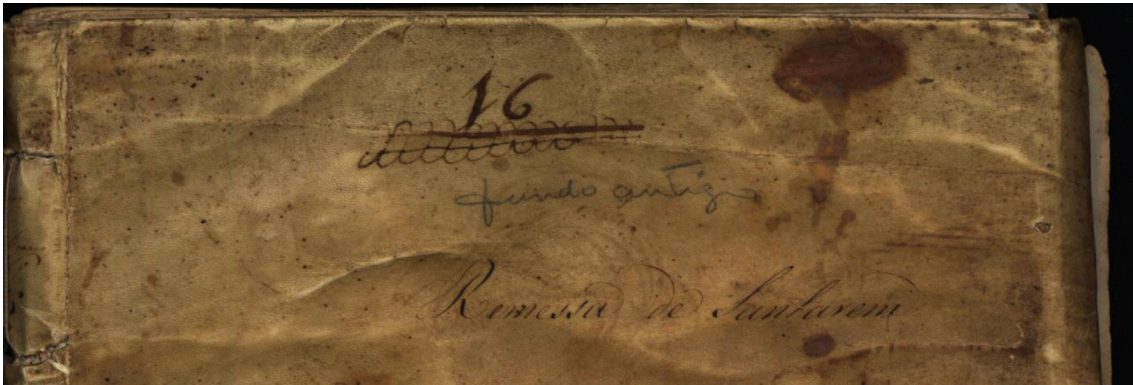 16
fundo antigo
Remessa de Santarem